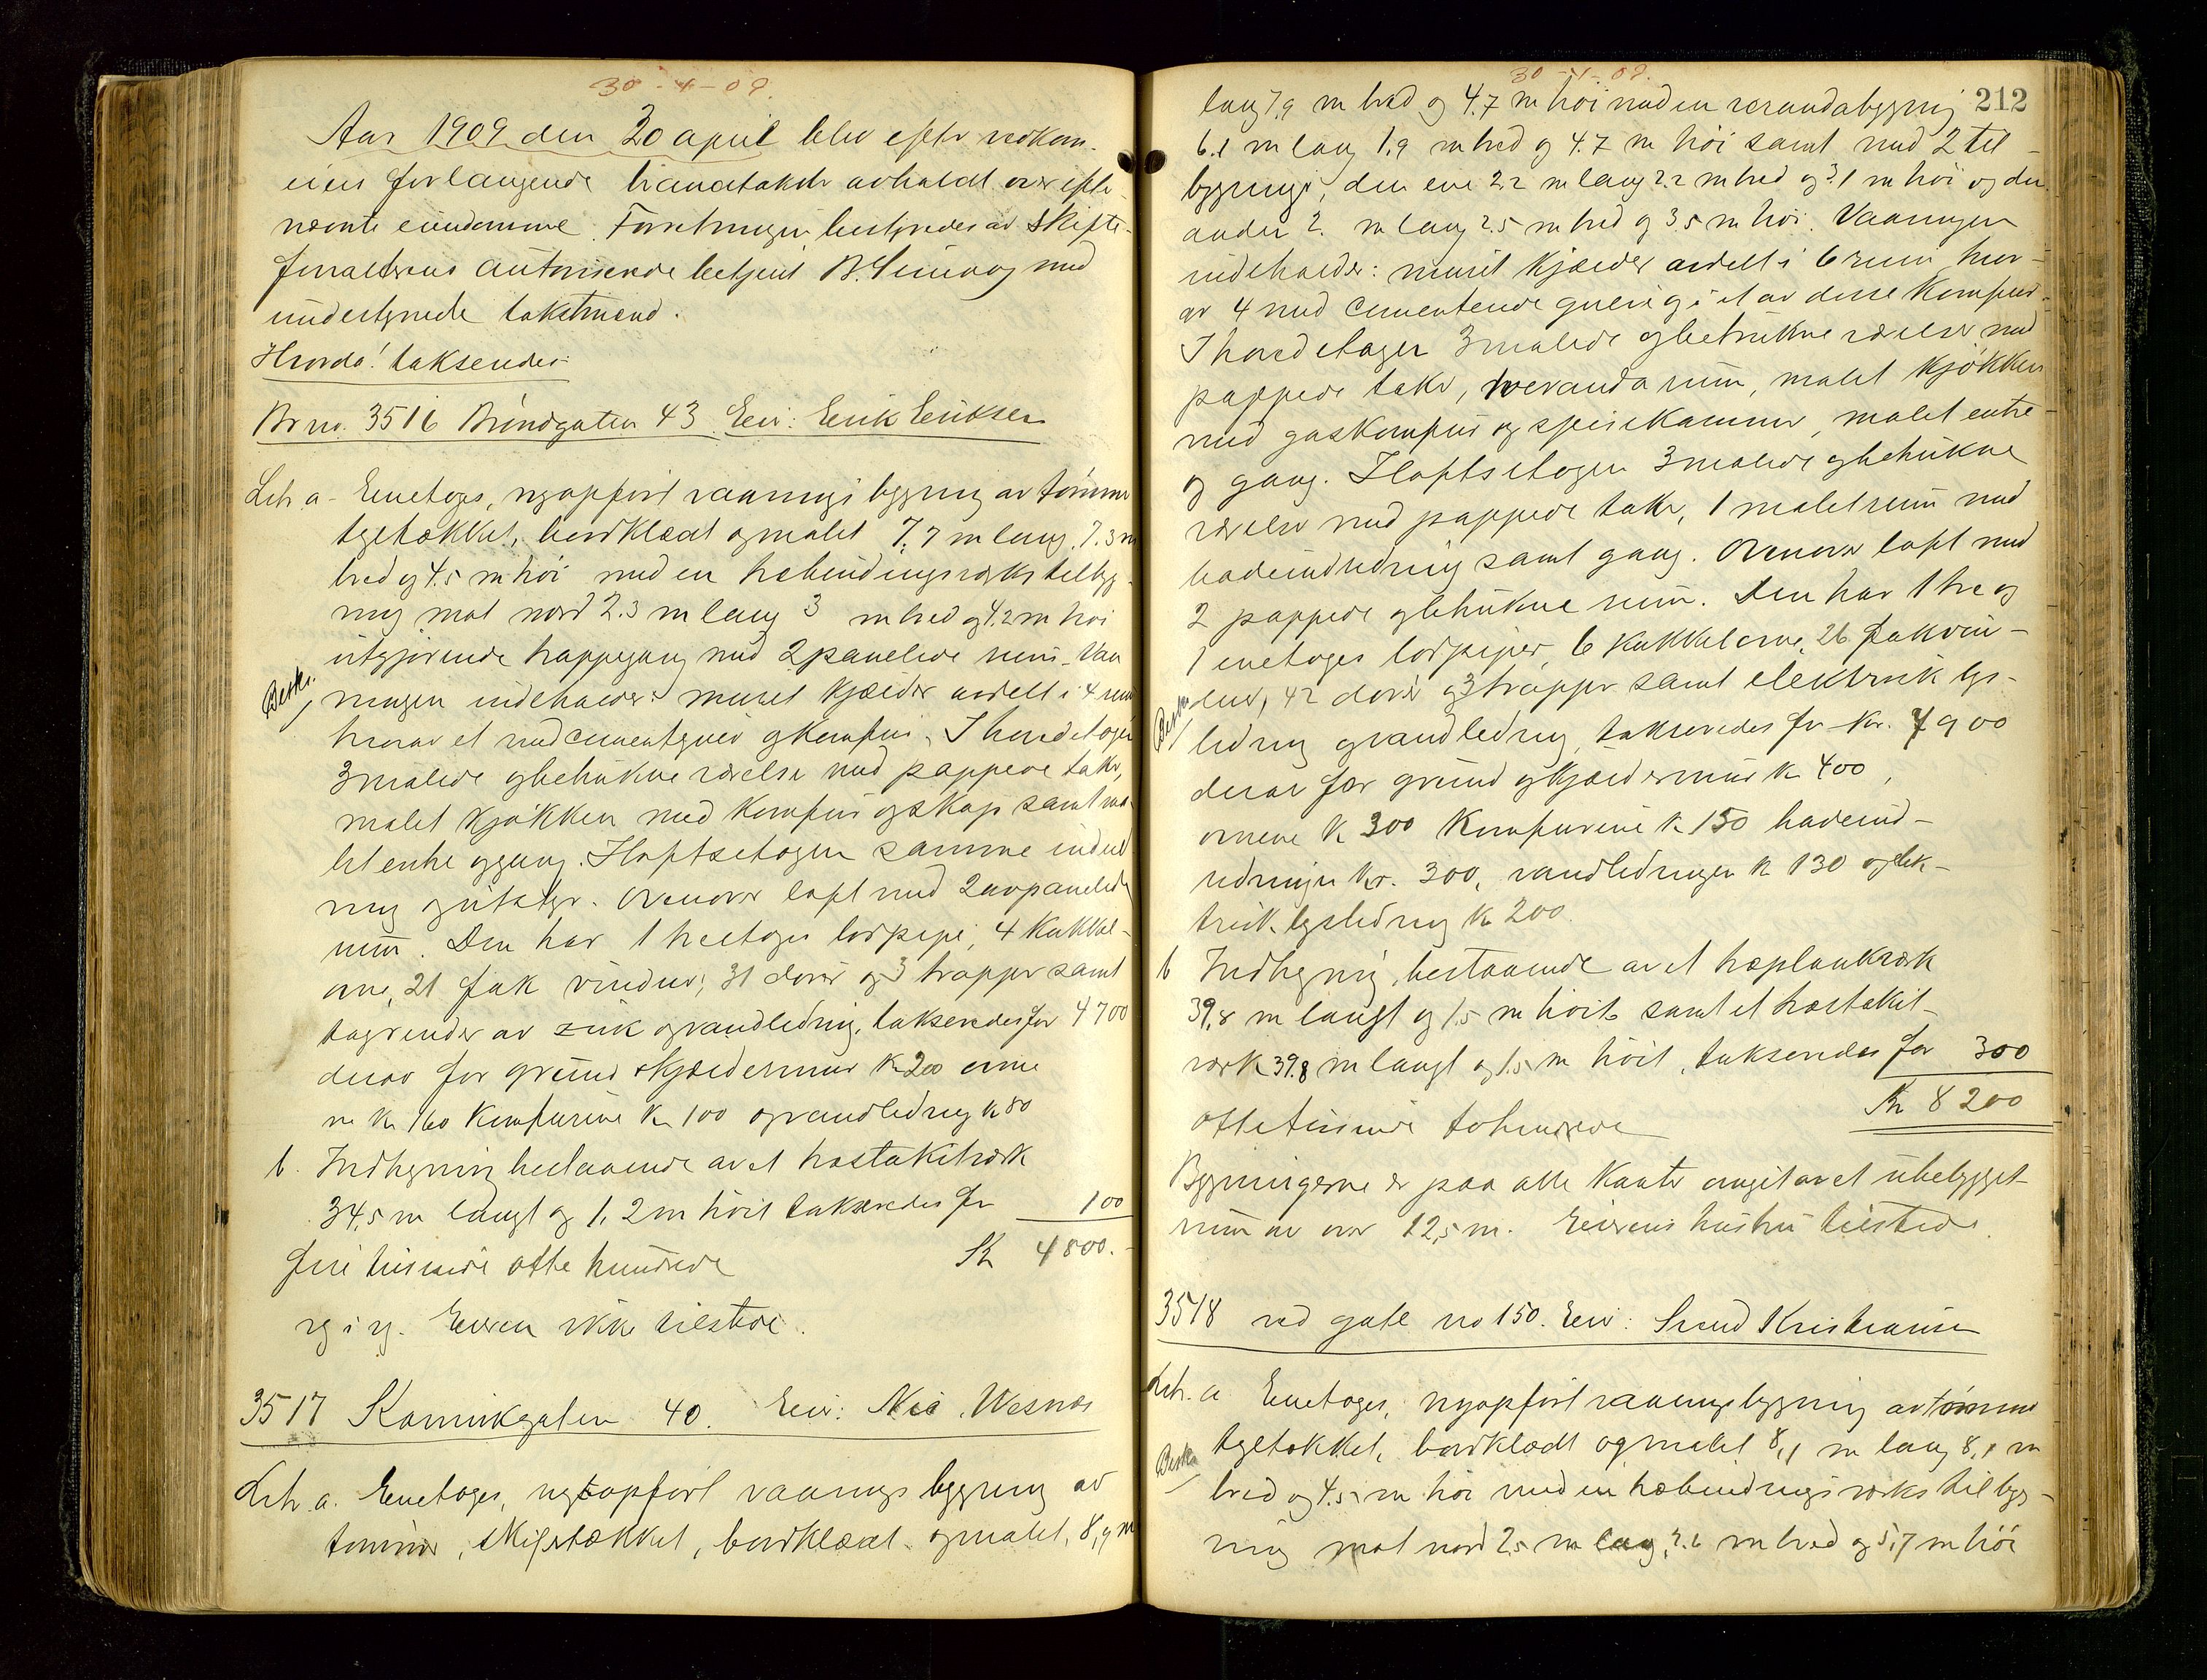 30-4-09.
Aar 1909 den 20 april blev efter vedkom-
enes forlangende brandtakster avholdt over efter-
nævnte eiendomme. Forretningen bestyredes av skifte-
forvalterens autoriserede betjent B. med
undertegnede takstmænd.
Hvorda! takseredes:
Br no. 3516 Brøndgaten 43 Eier: Eerik Eeriksen
Litr a - Eenetages, nyopført vaaningsbygning av tømmer
tegltækket, bordklædt og malet 7.7 m lang, 7.3 m
bred og 4.5 m høi med en træbindingsverks tilbyg-
ning mot nord 2.3 m lang 3 m bred og 4.2 m høi
utgjørende trappegang med 2 panelede rum. Vaa
Beskr.
ningen indeholder: muret kjælder avdelt i 4 rum
hvorav et med cementgulv og komfur. I hovedetagen
3 malede og betrukne værelser med pappede take,
malet kjøkken med komfur og skap samt ma-
let entre og gang. I loftsetagen samme indred
ning og utstyr. Ovenover loft med 2 avpanelede
rum. Den har 1 treetages lodpipe, 4 kakkel-
ovne, 21 fak vinduer, 31 dører og 3 trapper samt
tagrender av zink og vandledning, takseredes for 4700
derav for grund & kjældermur kr 200 ovne
ne kr 160 komfurene kr 100 og vandledning kr 80
b. Indhegning bestaaende av et træstakitværk
34,5 m langt og 1,2 m høit takseredes for 100
fire tusinde otte hundrede Kr 4800.-
rg i rg. Eieren ikke tilstede.
3517 Kannikgaten 40. Eier: Nic. Wesnes
Litr a. Eenetages, nyopført vaaningsbygning av
tømmer, skifertækket, bordklædt og malet, 8,9 m
30-4-09.
212
lang 7,9 m bred og 4.7 m høi med en verandabygning
6.1 m lang 1.9 m bred og 4.7 m høi samt med 2 til-
bygninger, den ene 2.2 m lang 2.2 m bred og 3.1 m høi og den
anden 2. m lang 2.5 m bred og 3.5 m høi. Vaaningen
indeholder: muret kjælder avdelt i 6 rum hvor-
av 4 med cementerede gulv og i et av disse komfur.
I hovedetagen 3 malede og betrukne værelser med
pappede take, verandarum, malet kjøkken
med gaskomfur og spisekammer, malet entre
og gang. I loftsetagen 3 malede og betrukne
værelser med pappede take, 1 malet rum med
badeindredning samt gang. Ovenover loft med
2 pappede og betrukne rum. Den har 1 tre og
1 enetages lodpiper, 6 kakkelovne, 26 fak vin-
Beskr.
duer, 42 dører og 3 trapper samt elektrisk lys-
ledning og vandledning, takseredes for kr. 7900
derav for grund og kjældermur kr 400,
ovnene kr 300 komfurene kr 150 badeind-
redningen kr. 300, vandledningen kr 130 og elek-
trisk lysledning kr 200.
b Indhegning, bestaaende av et træplankværk
39,8 m langt og 1,5 m høit samt et træstakit-
værk 39.8 m langt og 1.5 m høit, takseredes for 300
otte tusinde tohundrede Kr 8200
Bygningerne er paa alle kanter omgit av et ubebygget
rum av over 12,5 m. Eierens hustru tilstede.
3518 ved gate no 150. Eier: Svend Kristiansen
Litr. a Eenetages, nyopført vaaningsbygning av tømmer
Beskr
tegltækket, bordklædt og malet 8,1 m lang 8,1 m
bred og 4.5 m høi med en træbindingsverks tilbyg-
ning mot nord 2.5 m lang, 2.6 m bred og 5.7 m høi